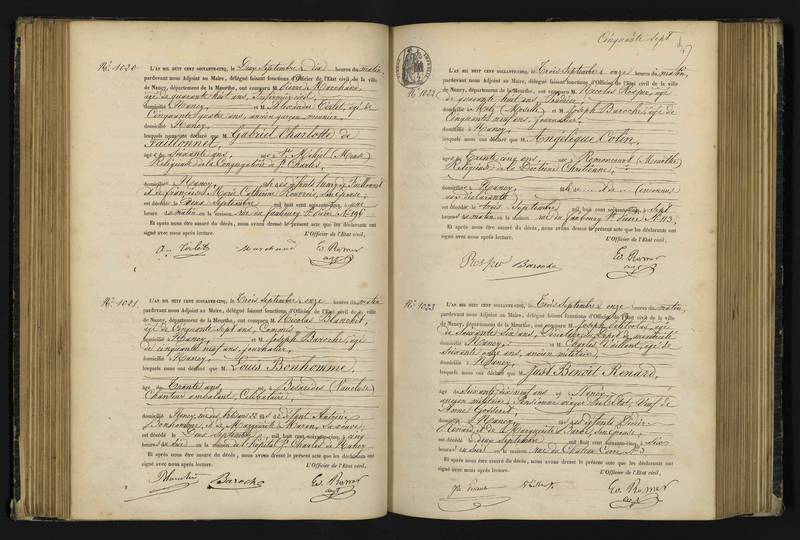 N.º 1020
L'AN MIL HUIT CENT SOIXANTE-CINQ, le Deux Septembre à dix heures du matin,
pardevant nous Adjoint au Maire, délégué faisant fonctions d'Officier de l'Etat civil de la ville
de Nancy, département de la Meurthe, ont comparu M. Pierre Marchand,
âgé de quarante huit ans,
domicilié à Nancy, et M. âgé de
Cinquante quatre ans, ancien garçon meunier,
domicilié à Nancy,
lesquels nous ont déclaré que Gabriel Charlotte de
Faillonnet,
âgée de soixante ans, née à St Mihiel (Meuse)
Religieuse de la Congrégation de St Charles,
domiciliée à Nancy, Faillonnet
et de Marie Catherine
est décédée le Deux Septembre mil huit cent soixante-cinq, à une
heure du matin en la maison rue du faubourg St Pierre N.º 196
Et après nous être assuré du décès, nous avons dressé le présent acte que les déclarants ont
signé avec nous après lecture.
L'Officier de l'Etat civil,
Marchand
N.º 1021
L'AN MIL HUIT CENT SOIXANTE-CINQ, le Trois Septembre à onze heures du matin
pardevant nous Adjoint au Maire, délégué faisant fonctions d'Officier de l'Etat civil de la ville
de Nancy, département de la Meurthe, ont comparu M. Nicolas Blanchet,
âgé de Cinquante sept ans, Commis,
domicilié à Nancy, et M. Joseph Baroche, âgé
de cinquante neuf ans, journalier,
domicilié à Nancy,
lesquels nous ont déclaré que Louis Bonhomme,
âgé de Trente ans, né à Bédarides (Vaucluse)
Chanteur ambulant, Célibataire,
domicilié à Nancy, Antoine
Bonhomme, et de Marguerite sa veuve;
est décédé le Deux Septembre mil huit cent soixante-cinq, à cinq
heures du soir en la maison de l'hôpital St Charles de Nancy
Et après nous être assuré du décès, nous avons dressé le présent acte que les déclarants ont
signé avec nous après lecture.
L'Officier de l'Etat civil,
Blanchet Baroche
Cinquante Sept
57
N.º 1022
L'AN MIL HUIT CENT SOIXANTE-CINQ, le Trois Septembre à onze heures du matin,
pardevant nous Adjoint au Maire, délégué faisant fonctions d'Officier de l'Etat civil de la ville
de Nancy, département de la Meurthe, ont comparu M. Nicolas Rosper, âgé
de quarante huit ans,
domicilié à Metz (Moselle) et M. Joseph Baroche, âgé de
Cinquante neuf ans, journalier,
domicilié à Nancy,
lesquels nous ont déclaré que Angélique Colin,
âgée de Trente cinq ans, née à Réméréville (Meurthe)
Religieuse de la Doctrine Chrétienne,
domiciliée à Nancy,
est décédée le trois Septembre mil huit cent soixante-cinq, à Sept
heures du matin en la maison rue du faubourg St Pierre N.º 113,
Et après nous être assuré du décès, nous avons dressé le présent acte que les déclarants ont
signé avec nous après lecture.
L'Officier de l'Etat civil,
Rosper Baroche
N.º 1023
L'AN MIL HUIT CENT SOIXANTE-CINQ, le Trois Septembre à onze heures du matin,
pardevant nous Adjoint au Maire, délégué faisant fonctions d'Officier de l'Etat civil de la ville
de Nancy, département de la Meurthe, ont comparu M. Joseph âgé
de Soixante six ans, Directeur du Dépôt de mendicité
domicilié à Nancy, et M. Charles Vaillant, âgé de
soixante onze ans, ancien militaire,
domicilié à Nancy,
lesquels nous ont déclaré que Just Benoît Renard,
âgé de soixante dix neuf ans, né à Nancy,
ancien militaire, Pensionné Veuf de
Anne
domicilié à Nancy, Pierre
Renard, et de Marguerite
est décédé le deux Septembre mil huit cent soixante-cinq, à Six
heures du soir en la maison rue du N.º 3,
Et après nous être assuré du décès, nous avons dressé le présent acte que les déclarants ont
signé avec nous après lecture.
L'Officier de l'Etat civil,